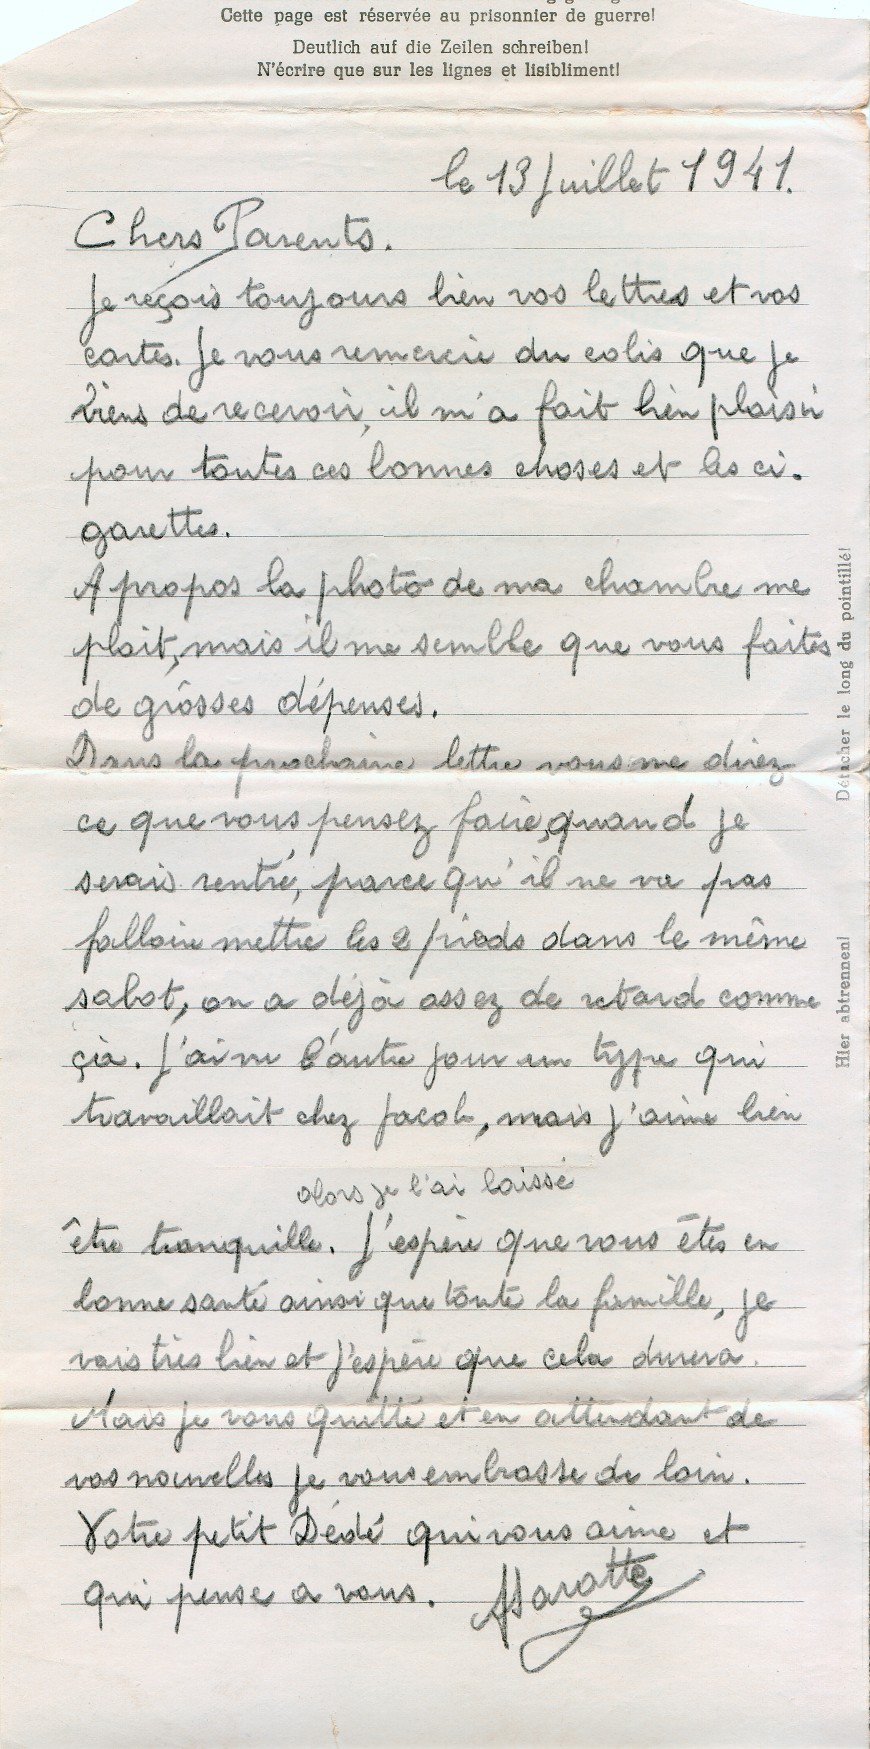 Cette page est réservée au prisonnier de guerre!
Deutlich auf die Zeilen schreiben!
N'écrire que sur les lignes et lisibliment!
le 13 Juillet 1941.
Chers Parents.
Je reçois toujours bien vos lettres et vos
cartes. Je vous remercie du colis que je
viens de recevoir, il m'a fait bien plaisir
pour toutes ces bonnes choses et les ci-
garettes.
A propos la photo de ma chambre me
plait, mais il me semble que vous faites
de grôsses dépenses.
Dans la prochaine lettre vous me direz
ce que vous pensez faire, quand je
serais rentré, parce qu'il ne va pas
falloir mettre les 2 pieds dans le même
sabot, on a déjà assez de retard comme
çà. J'ai vu l'autre jour un type qui
travaillait chez Jacob, mais j'aime bien
alors je l'ai laissé
être tranquille. J'espère que vous êtes en
bonne santé ainsi que toute la famille, je
vais très bien et j'espère que cela durera.
Mais je vous quitte et en attendant de
vos nouvelles je vous embrasse de loin.
Votre petit Dédé qui vous aime et
qui pense a vous.
Détacher le long du pointillé!
Hier abtrennen!